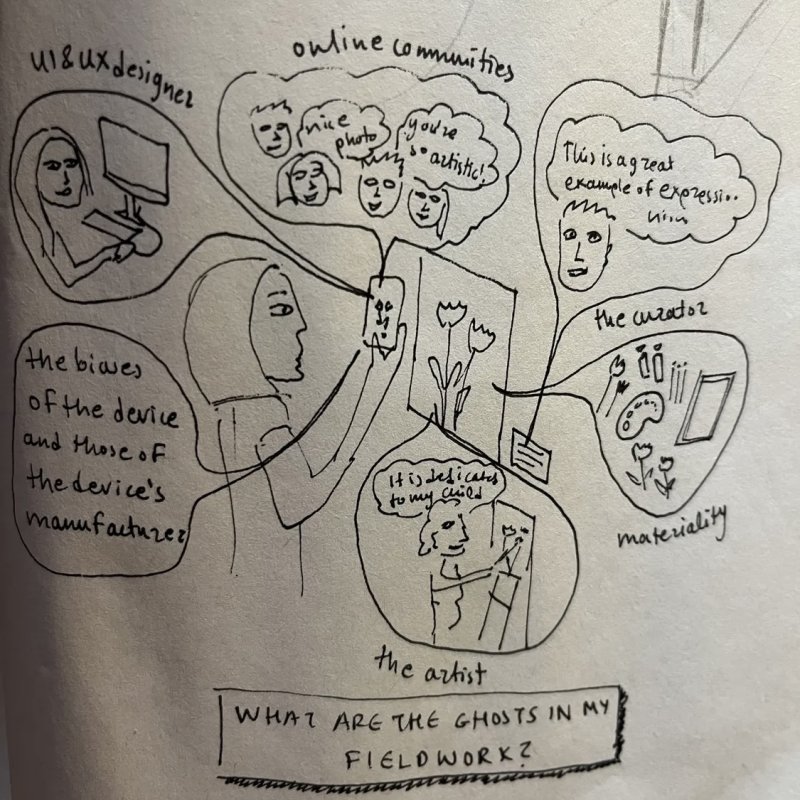 UI & UX designer
online communities
nice
photo
you're
so artistic!
This is a great
example of expressio-
nism
the curator
the biases
of the device
and those of
the device's
manufacturer
It is dedicated
to my child
materiality
the artist
WHAT ARE THE GHOSTS IN MY
FIELDWORK?